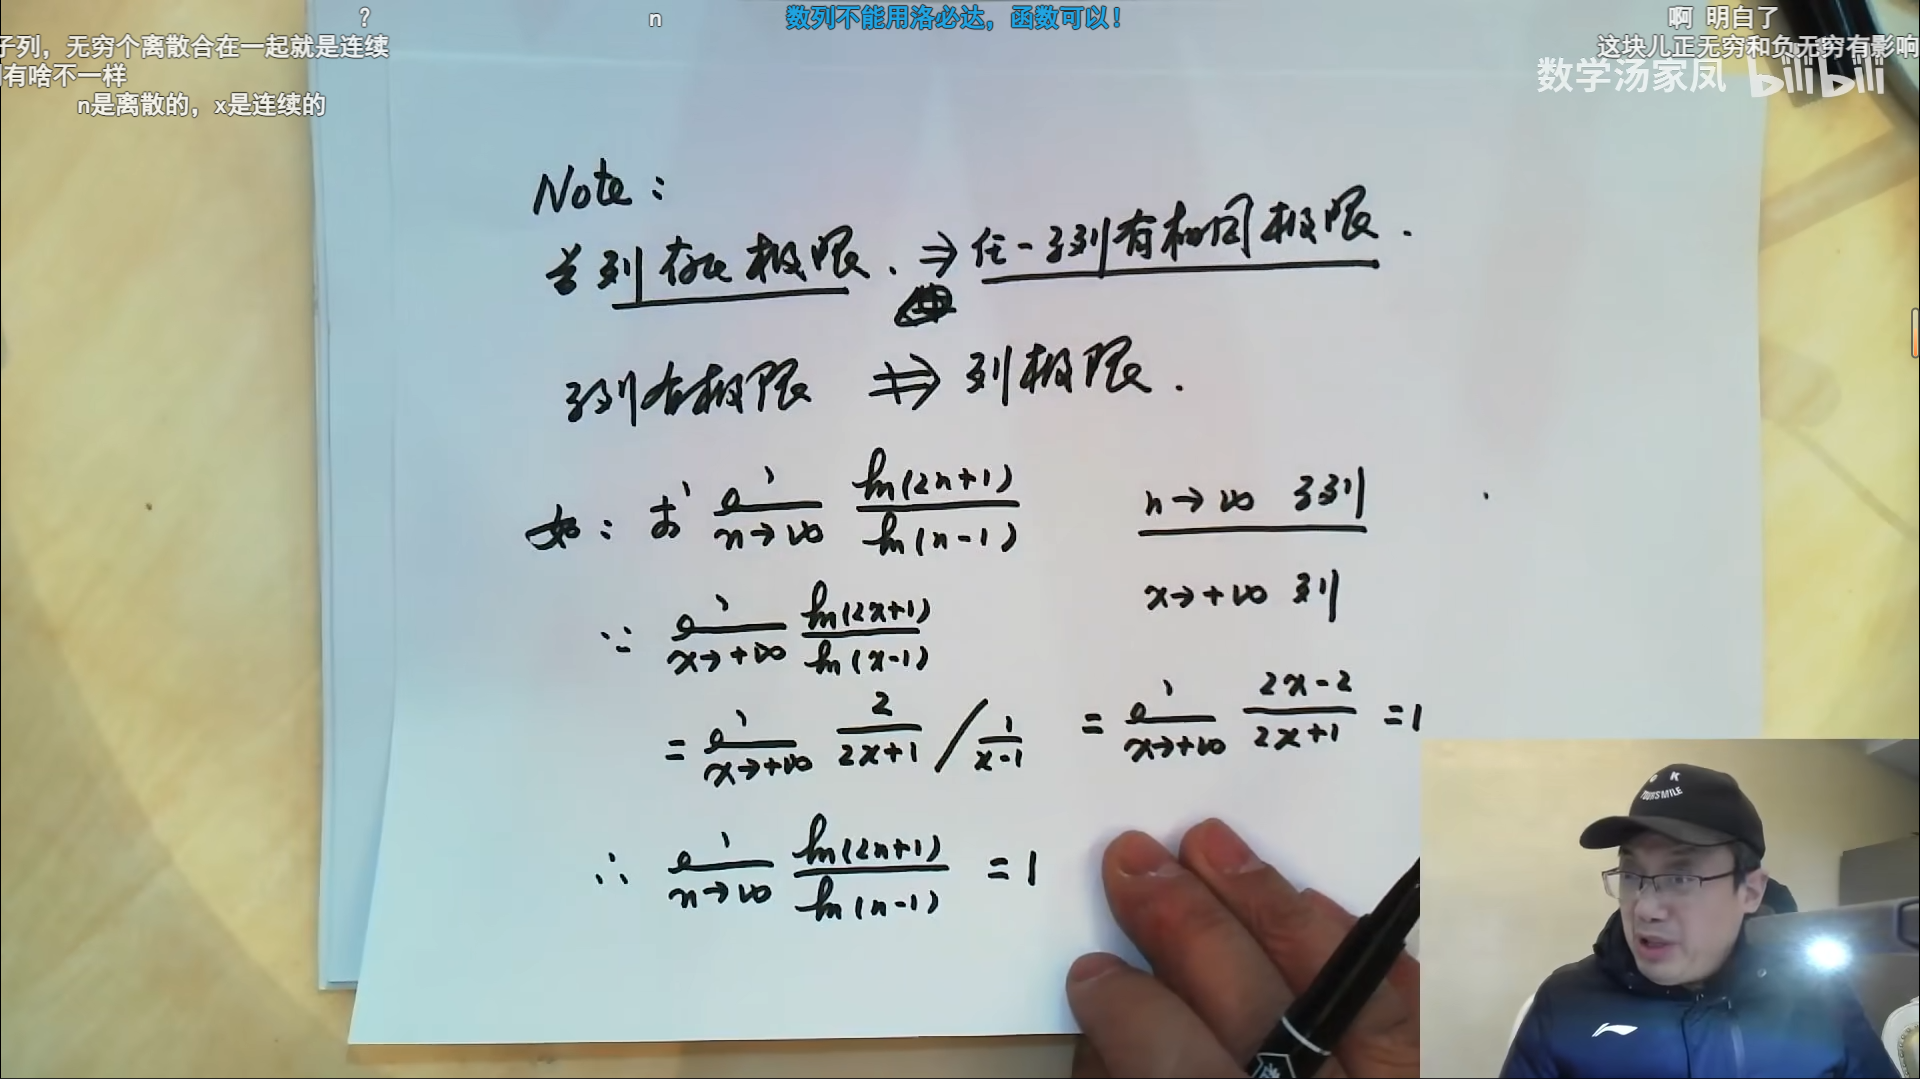 ?
n
数列不能用洛必达，函数可以！
啊 明白了
子列，无穷个离散合在一起就是连续
这块儿正无穷和负无穷有影响
有啥不一样
数学汤家凤 bilibili
n是离散的，x是连续的
Note:
若列存在极限. ⇒ 任一子列有相同极限.
子列有极限 ⇏ 列极限.
如: 求 lim n→∞ ln(2n+1)/ln(n-1)
n→∞ 子列
x→+∞ 列
∵ lim x→+∞ ln(2x+1)/ln(x-1)
= lim x→+∞ 2/2x+1 / 1/x-1 = lim x→+∞ 2x-2/2x+1 = 1
∴ lim n→∞ ln(2n+1)/ln(n-1) = 1
OK
YOURSMILE